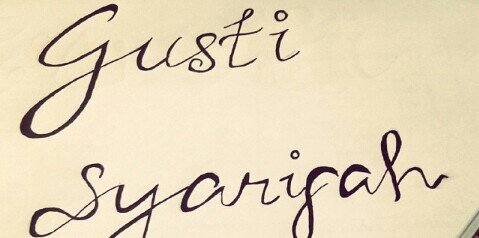 Gusti
syarifah